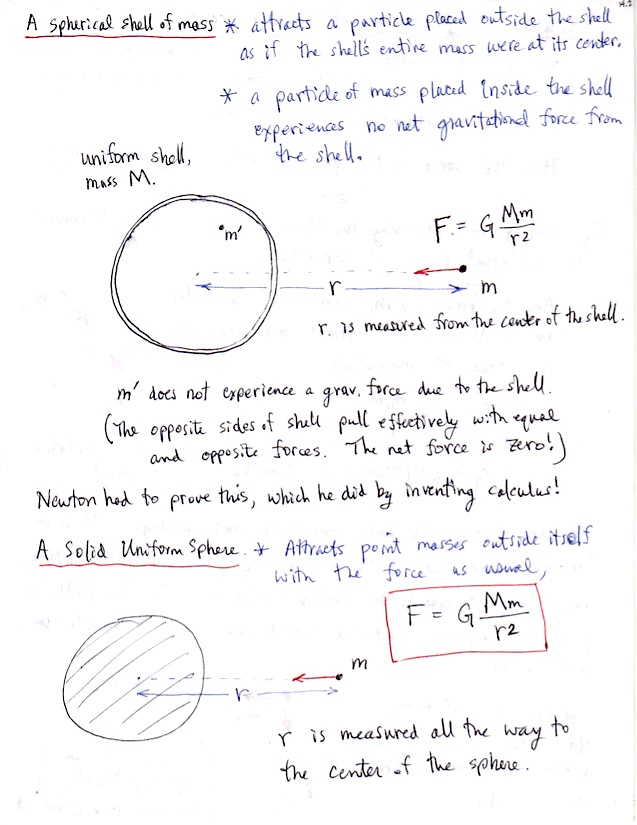 14.2
A spherical shell of mass * attracts a particle placed outside the shell
as if the shell's entire mass were at its center.
* a particle of mass placed inside the shell
experiences no net gravitational force from
the shell.
uniform shell,
mass M.
m'
F = G Mm/r2
r
m
r is measured from the center of the shell.
m' does not experience a grav. force due to the shell.
(The opposite sides of shell pull effectively with equal
and opposite forces. The net force is zero!)
Newton had to prove this, which he did by inventing calculus!
A Solid Uniform Sphere. * Attracts point masses outside itself
with the force as usual,
F = G Mm/r2
m
r
r is measured all the way to
the center of the sphere.